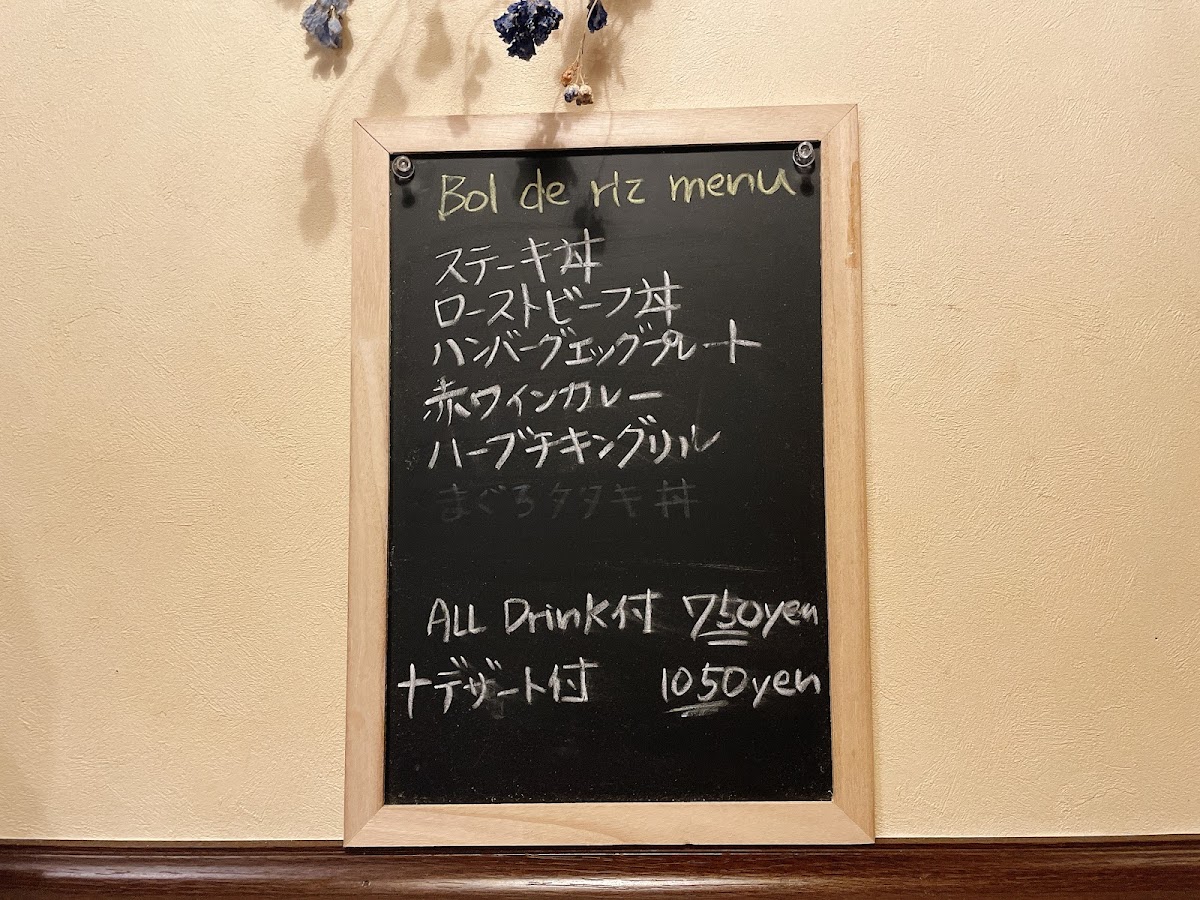 Bol de riz menu
ステーキ丼
ローストビーフ丼
ハンバーグエッグプレート
赤ワインカレー
ハーブチキングリル
まぐろタタキ丼
ALL Drink付 750yen
+デザート付 1050yen